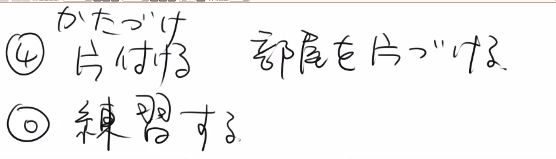 かたづけ
④ 片付ける 部屋を片づける
⓪ 練習する